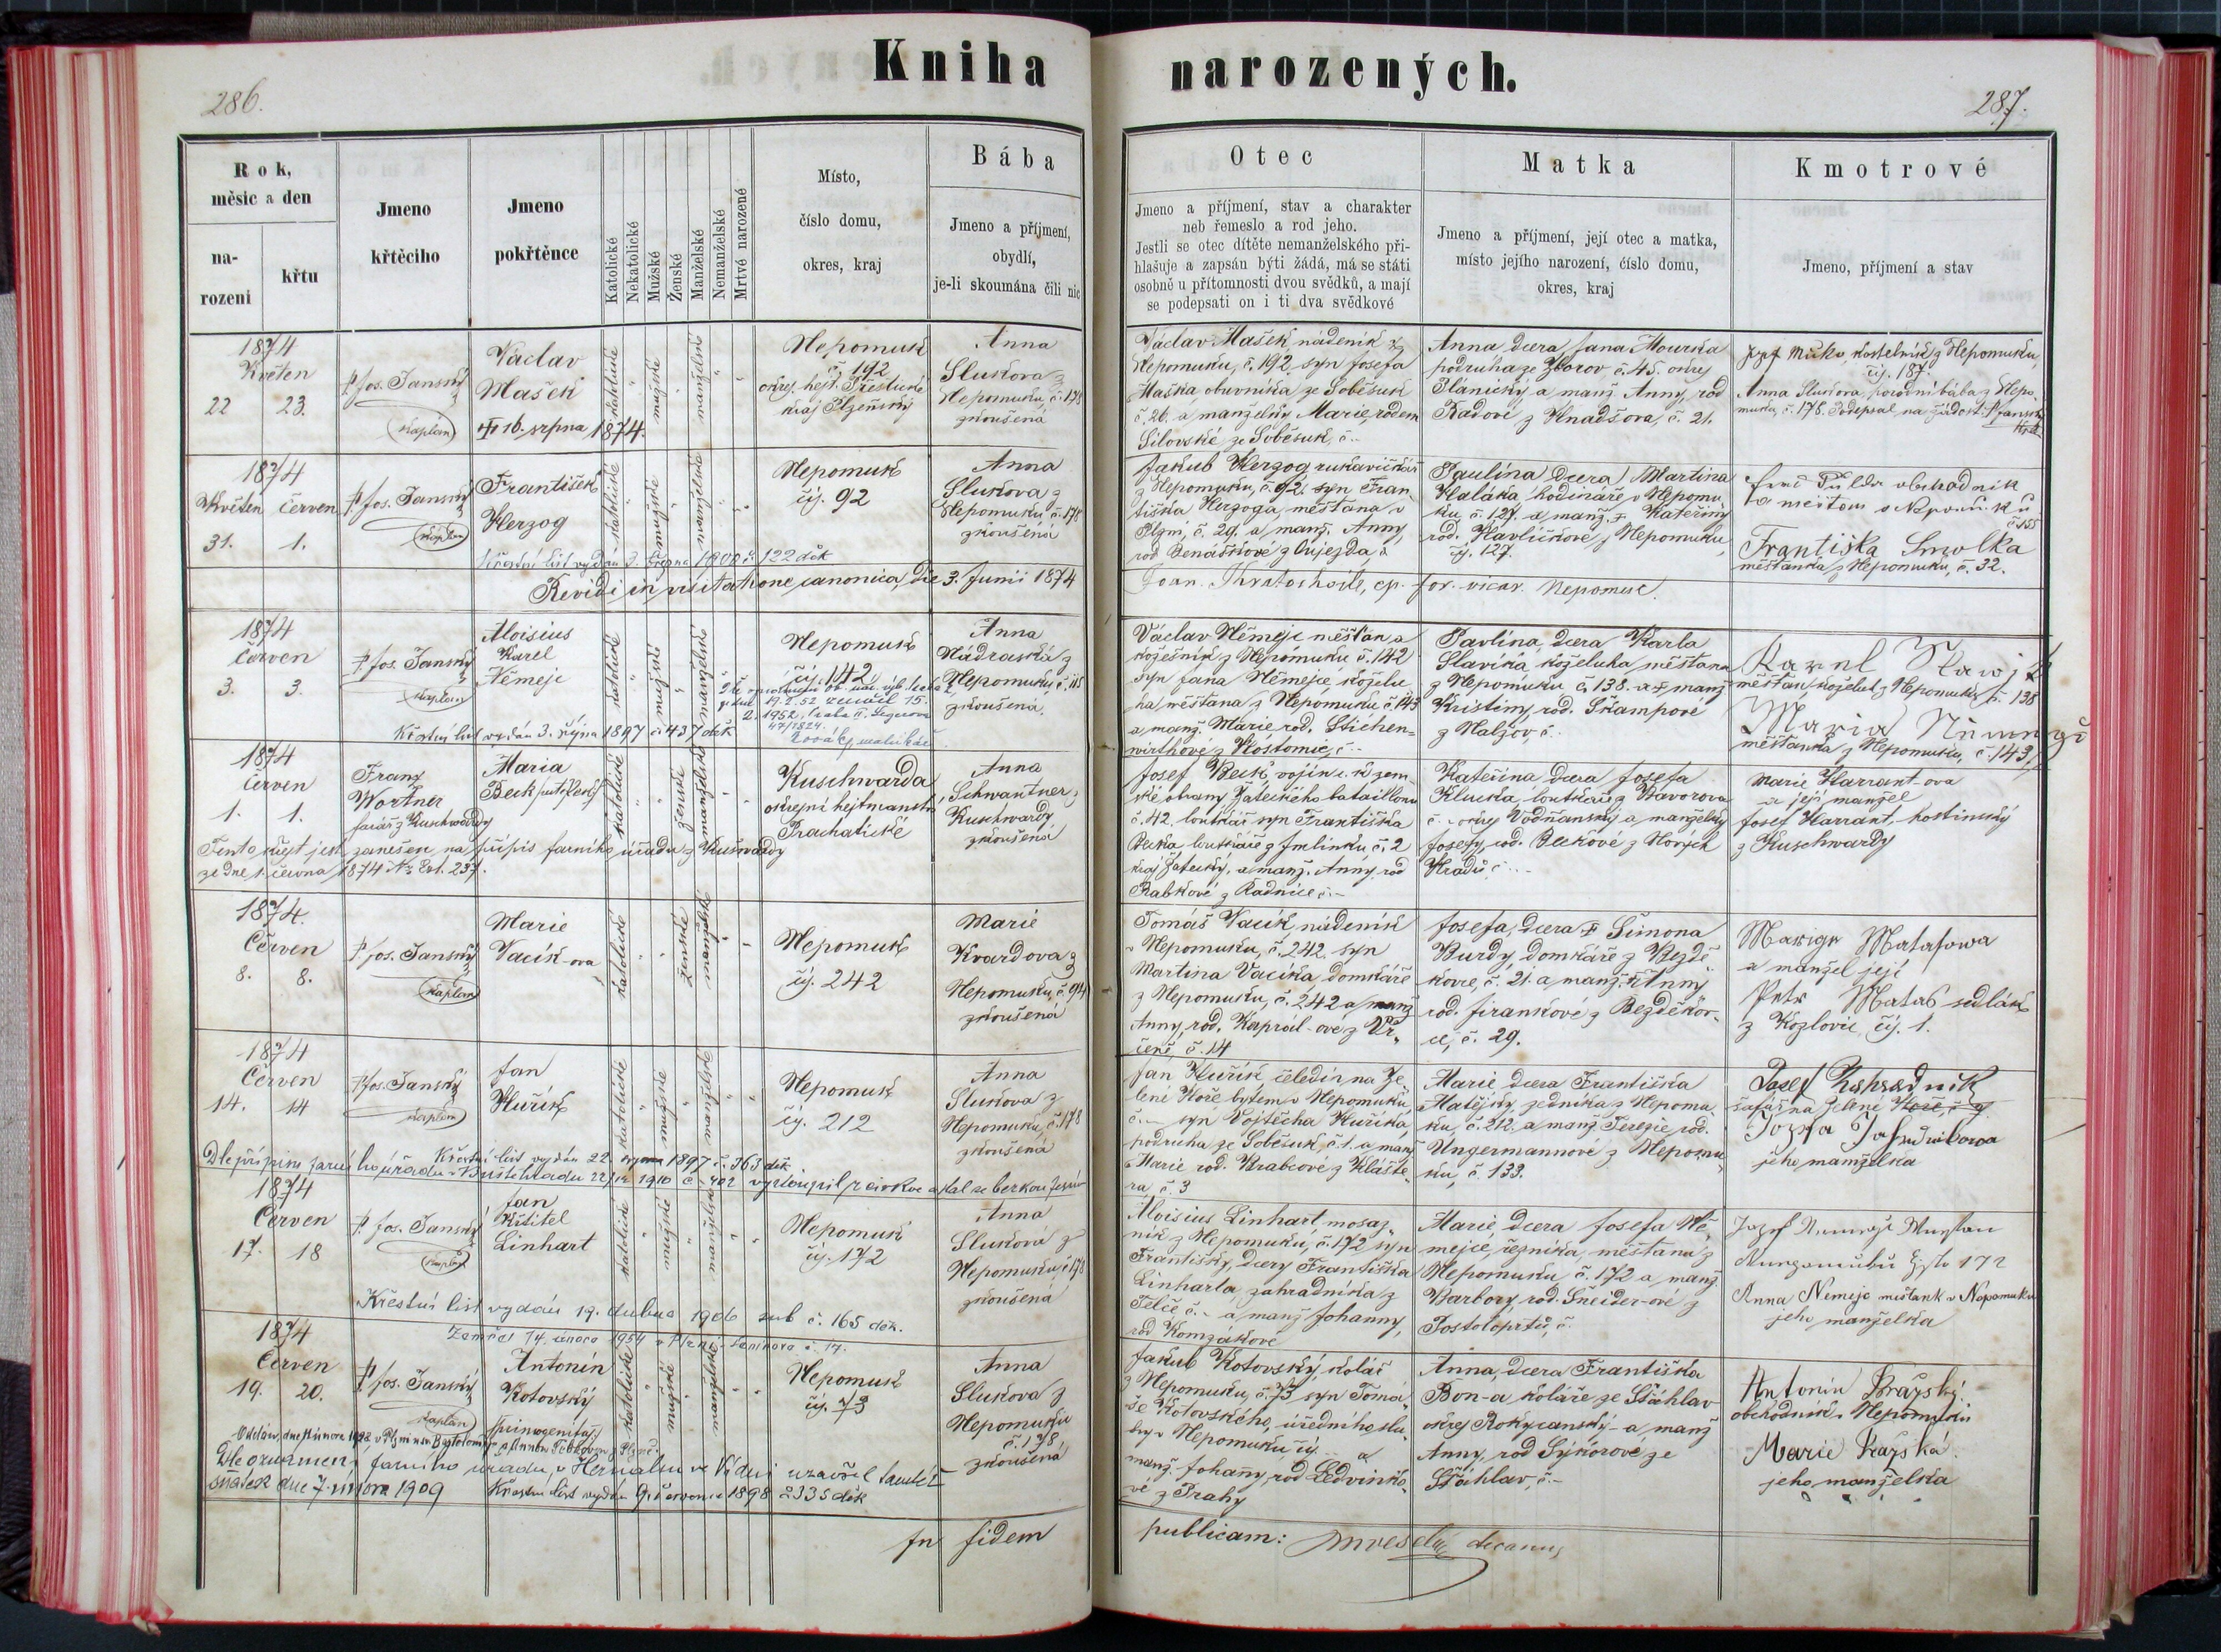 Kniha narozených.
286.
287.
Rok,
měsíc a den
na-
rozeni
křtu
Jmeno
křtěciho
Jmeno
pokřtěnce
Katolické
Nekatolické
Mužské
Ženské
Manželské
Nemanželské
Mrtvé narozené
Místo,
číslo domu,
okres, kraj
Bába
Jmeno a příjmení,
obydlí,
je-li skoumána čili nic
Otec
Jmeno a příjmení, stav a charakter
neb řemeslo a rod jeho.
Jestli se otec dítěte nemanželského při-
hlašuje a zapsán býti žádá, má se státi
osobně u přítomnosti dvou svědků, a mají
se podepsati on i ti dva svědkové
Matka
Jmeno a příjmení, její otec a matka,
místo jejího narození, číslo domu,
okres, kraj
Kmotrové
Jmeno, příjmení a stav
1874
Květen
22 23.
P. Jos. Janský
Kaplan
Václav
Mašek
16. srpna 1874.
katolické
mužské
manželské
Nepomuk
č. 192
okres. hejt. Přestické
kraj Plzeňský
Anna
Slukova z
Nepomuku, č. 178
zkoušená
Václav Mašek nádeník z
Nepomuku, č. 192 syn Josefa
Maška obuvníka ze Soběsuk
č. 26. a manželky Marie, rodem
Silovské ze Soběsuk, č. -
Anna dcera Jana Mourka
podruha ze Zborov č. 45. okres
Plánický a manž. Anny, rod
Radové z Hnadšova, č. 21.
kostelník z Nepomuku,
čís. 187.
Anna Slukova, porodní bába z Nepo-
muku, č. 178. Podepsal na žádost: P. Janský
1874
Květen Červen
31. 1.
P. Jos. Janský
Kaplan
František
Herzog
katolické
mužské
manželské
Nepomuk
čís. 92
Anna
Slukova z
Nepomuku č. 178
zkoušená
Křestní list vydán 3. března 1900 č. 122 děk
Jakub Herzog rukavičkář
z Nepomuku, č. 92. syn Fran-
tiška Herzoga, měšťana v
Plzni, č. 29. a manž. Anny,
rod. Benáškové z Oujezda, č
Paulína dcera Martina
Haláka, hodináře v Nepomu-
ku, č. 127. a manž. Kateřiny
rod. Havlíčkové z Nepomuku,
čís. 127.
obchodník
a měšťan v Nepomuku
č. 155
Františka Smolka
měšťanka z Nepomuku, č. 32.
Revidi in visitatione canonica, die 3. Junii 1874
Joan. Kratochvile, ep. for. vicar. Nepomuc.
1874
Červen
3. 3.
P. Jos. Janský
Kaplan
Aloisius
Karel
Němejc
katolické
mužské
manželské
Nepomuk
čís. 142
Anna
Nádraská z
Nepomuku, č. 115
zkoušená.
Křestný list vydán 3. října 1897 č. 437 děk
Václav Němejc měšťan a
kožešník z Nepomuku č. 142
syn Jana Němejce, koželu-
ha, měšťana z Nepomuku č. 143
a manž. Marie, rod. Stichen-
wirthové z Hostomic, č. -
Pavlína, dcera Karla
Slavíka, koželuha, měšťana
z Nepomuku č. 138. a manž
Kristiny, rod. Škampové
z Malzov, č. -
Karel Slawjk
měšťan, koželuh z Nepomuku č. 138
Maria
měšťanka z Nepomuku, č. 143.
1874
Červen
1. 1.
Franz
Wortner
farář z Kuschwardy
Maria
Beck
katolické
ženské
manželské
Kuschwarda
okresní hejtmanství
Prachatické
Anna
Schwantner z
Kuschwardy
zkoušená
Tento křest jest zanešen na přípis farního úřadu z Kušwardy
ze dne 1. června 1874 No Ext. 237.
Josef Beck, vojín c. k. zem-
ské obrany Žateckého bataillonu
č. 42. loutkář syn Františka
Becka, loutkáře z Jmlinku č. 2
kraj Žatecký, a manž. Anny, rod
Rabkové z Radnice, č. -
Kateřina dcera Josefa
Klucka, loutkáře z Bavorova
č. - okres Vodňanský a manželky
Josefy, rod. Beckové z Nových
Hradů č. -
Marie Harrant-ova
a její manžel
Josef Harrant, hostinský
z Kuschwardy
1874.
Červen
8. 8.
P. Jos. Janský
Kaplan
Marie
Vacík-ová
katolické
ženské
manželské
Nepomuk
čís. 242
Marie
Kvardova z
Nepomuku, č. 94
zkoušená
Tomáš Vacík, nádeník
v Nepomuku, č. 242. syn
Martina Vacíka, domkáře
z Nepomuku, č. 242 a manž
Anny, rod. Kaprál-ové z Vr-
čeně, č. 14
Josefa, dcera Šimona
Burdy, domkáře z Bezdě-
kovce, č. 21. a manž. Anny
rod. Jirankové z Bezděkov-
ce, č. 29.
Matasowa
a manžel její
Petr Matas sedlák
z Kozlovic, čís. 1.
1874
Červen
14. 14
P. Jos. Janský
Kaplan
Jan
Kuřík
katolické
mužské
manželské
Nepomuk
čís. 212
Anna
Slukova z
Nepomuku, č. 178
zkoušená
Křestní list vydán 22. srpna 1897 č. 363 děk
Dle přípisu farního úřadu v Buštěhradu 22/12 1910 č. 402 vystoupil z církve a stal se bezkonfesním
Jan Kuřík, čeledín na Ze-
lené Hoře bytem v Nepomuku
č. - syn Vojtěcha Kuříka,
podruha ze Soběsuk, č. 1. a manž
Marie rod. Krabcové z Klášte-
ra č. 3
Marie dcera Františka
Matějky, zedníka z Nepomu-
ku, č. 212. a manž. Terezie rod.
Ungermannové z Nepomu-
ku, č. 133.
Josef
šafář na Zelené Hoře,
jeho manželka
1874
Červen
17. 18
P. Jos. Janský
Kaplan
Jan
Křtitel
Linhart
katolické
mužské
manželské
Nepomuk
čís. 172
Anna
Sluková z
Nepomuku č. 178
zkoušená
Křestní list vydán 19. dubna 1906 sub č. 165 děk.
Zemřel 14. února 1954 v Plzni
Aloisius Linhart, mosaz-
ník z Nepomuku, č. 172 syn
Františky, dcery Františka
Linharta, zahradníka z
Telče č. - a manž. Johanny,
rod Komzákové
Marie, dcera Josefa Ně-
mejce, řezníka, měšťana z
Nepomuku č. 172 a manž
Barbory, rod. Šneider-ové z
Postoloprtů, č.
172
Anna Nemejc měšťank v Nepomuku
jeho manželka
1874
Červen
19. 20.
P. Jos. Janský
Kaplan
Antonín
Kotovský
katolické
mužské
manželské
Nepomuk
čís. 73
Anna
Slukova z
Nepomuku
č. 178
zkoušená
Dle oznámení farního úřadu v Hernalsu ve Vídni uzavřel tamtéž
sňatek dne 7. února 1909
Křestní list vydán 9. července 1898 č. 335 děk
Jakub Kotovský, kolář
z Nepomuku, č. 73 syn Tomá-
še Kotovského, úředního slu-
hy v Nepomuku, čís. - a
manž. Johany, rod Ledvinko-
vé z Prahy
Anna, dcera Františka
Bon-a koláře ze Šťáhlav
okres Rokycanský - a manž
Anny, rod Sýkorové ze
Šťáhlav, č. -
Antonín Pražský
obchodník v Nepomuku
Marie Pražská
jeho manželka
In fidem publicam:
decanus